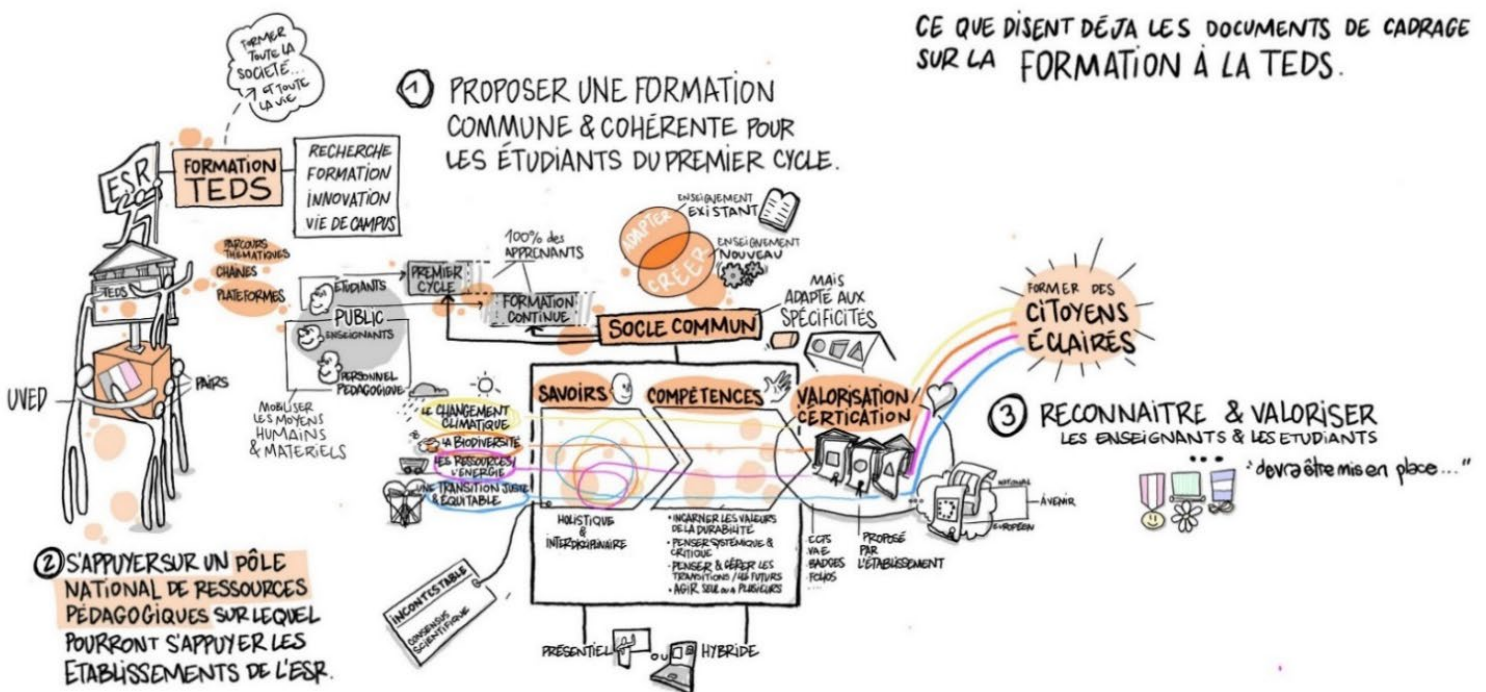 CE QUE DISENT DÉJA LES DOCUMENTS DE CADRAGE
SUR LA FORMATION À LA TEDS.
FORMER
TOUTE LA
SOCIÉTÉ...
ET TOUTE
LA VIE
① PROPOSER UNE FORMATION
COMMUNE & COHÉRENTE POUR
LES ÉTUDIANTS DU PREMIER CYCLE.
ESR
FORMATION
TEDS
RECHERCHE
FORMATION
INNOVATION
VIE DE CAMPUS
TEDS
PARCOURS
THÉMATIQUES
CHAÎNES
PLATEFORMES
UVED
PAIRS
ÉTUDIANTS
PUBLIC
ENSEIGNANTS
PERSONNEL
PÉDAGOGIQUE
MOBILISER
LES MOYENS
HUMAINS
& MATERIELS
PREMIER
CYCLE
100% des
APPRENANTS
FORMATION
CONTINUE
ADAPTER
ENSEIGNEMENT
EXISTANT
CRÉER
ENSEIGNEMENT
NOUVEAU
SOCLE COMMUN
MAIS
ADAPTÉ AUX
SPÉCIFICITÉS
SAVOIRS
COMPÉTENCES
VALORISATION/
CERTICATION
LE CHANGEMENT
CLIMATIQUE
LA BIODIVERSITÉ
LES RESSOURCES/
L'ÉNERGIE
UNE TRANSITION JUSTE
& ÉQUITABLE
HOLISTIQUE
&
INTERDISCIPLINAIRE
• INCARNER LES VALEURS
DE LA DURABILITÉ
• PENSER SYSTÉMIQUE &
CRITIQUE
• PENSER & GÉRER LES
TRANSITIONS / LES FUTURS
• AGIR SEUL ou à PLUSIEURS
ECTS
VAE
BADGES
FOLIOS
...
PROPOSÉ
PAR
L'ÉTABLISSEMENT
NATIONAL
EUROPÉEN
AVENIR
FORMER DES
CITOYENS
ÉCLAIRÉS
③ RECONNAITRE & VALORISER
LES ENSEIGNANTS & LES ETUDIANTS
...
"devra être mis en place..."
② S'APPUYER SUR UN PÔLE
NATIONAL DE RESSOURCES
PÉDAGOGIQUES SUR LEQUEL
POURRONT S'APPUYER LES
ETABLISSEMENTS DE L'ESR.
INCONTESTABLE
CONSENSUS
SCIENTIFIQUE
PRÉSENTIEL
OU
HYBRIDE